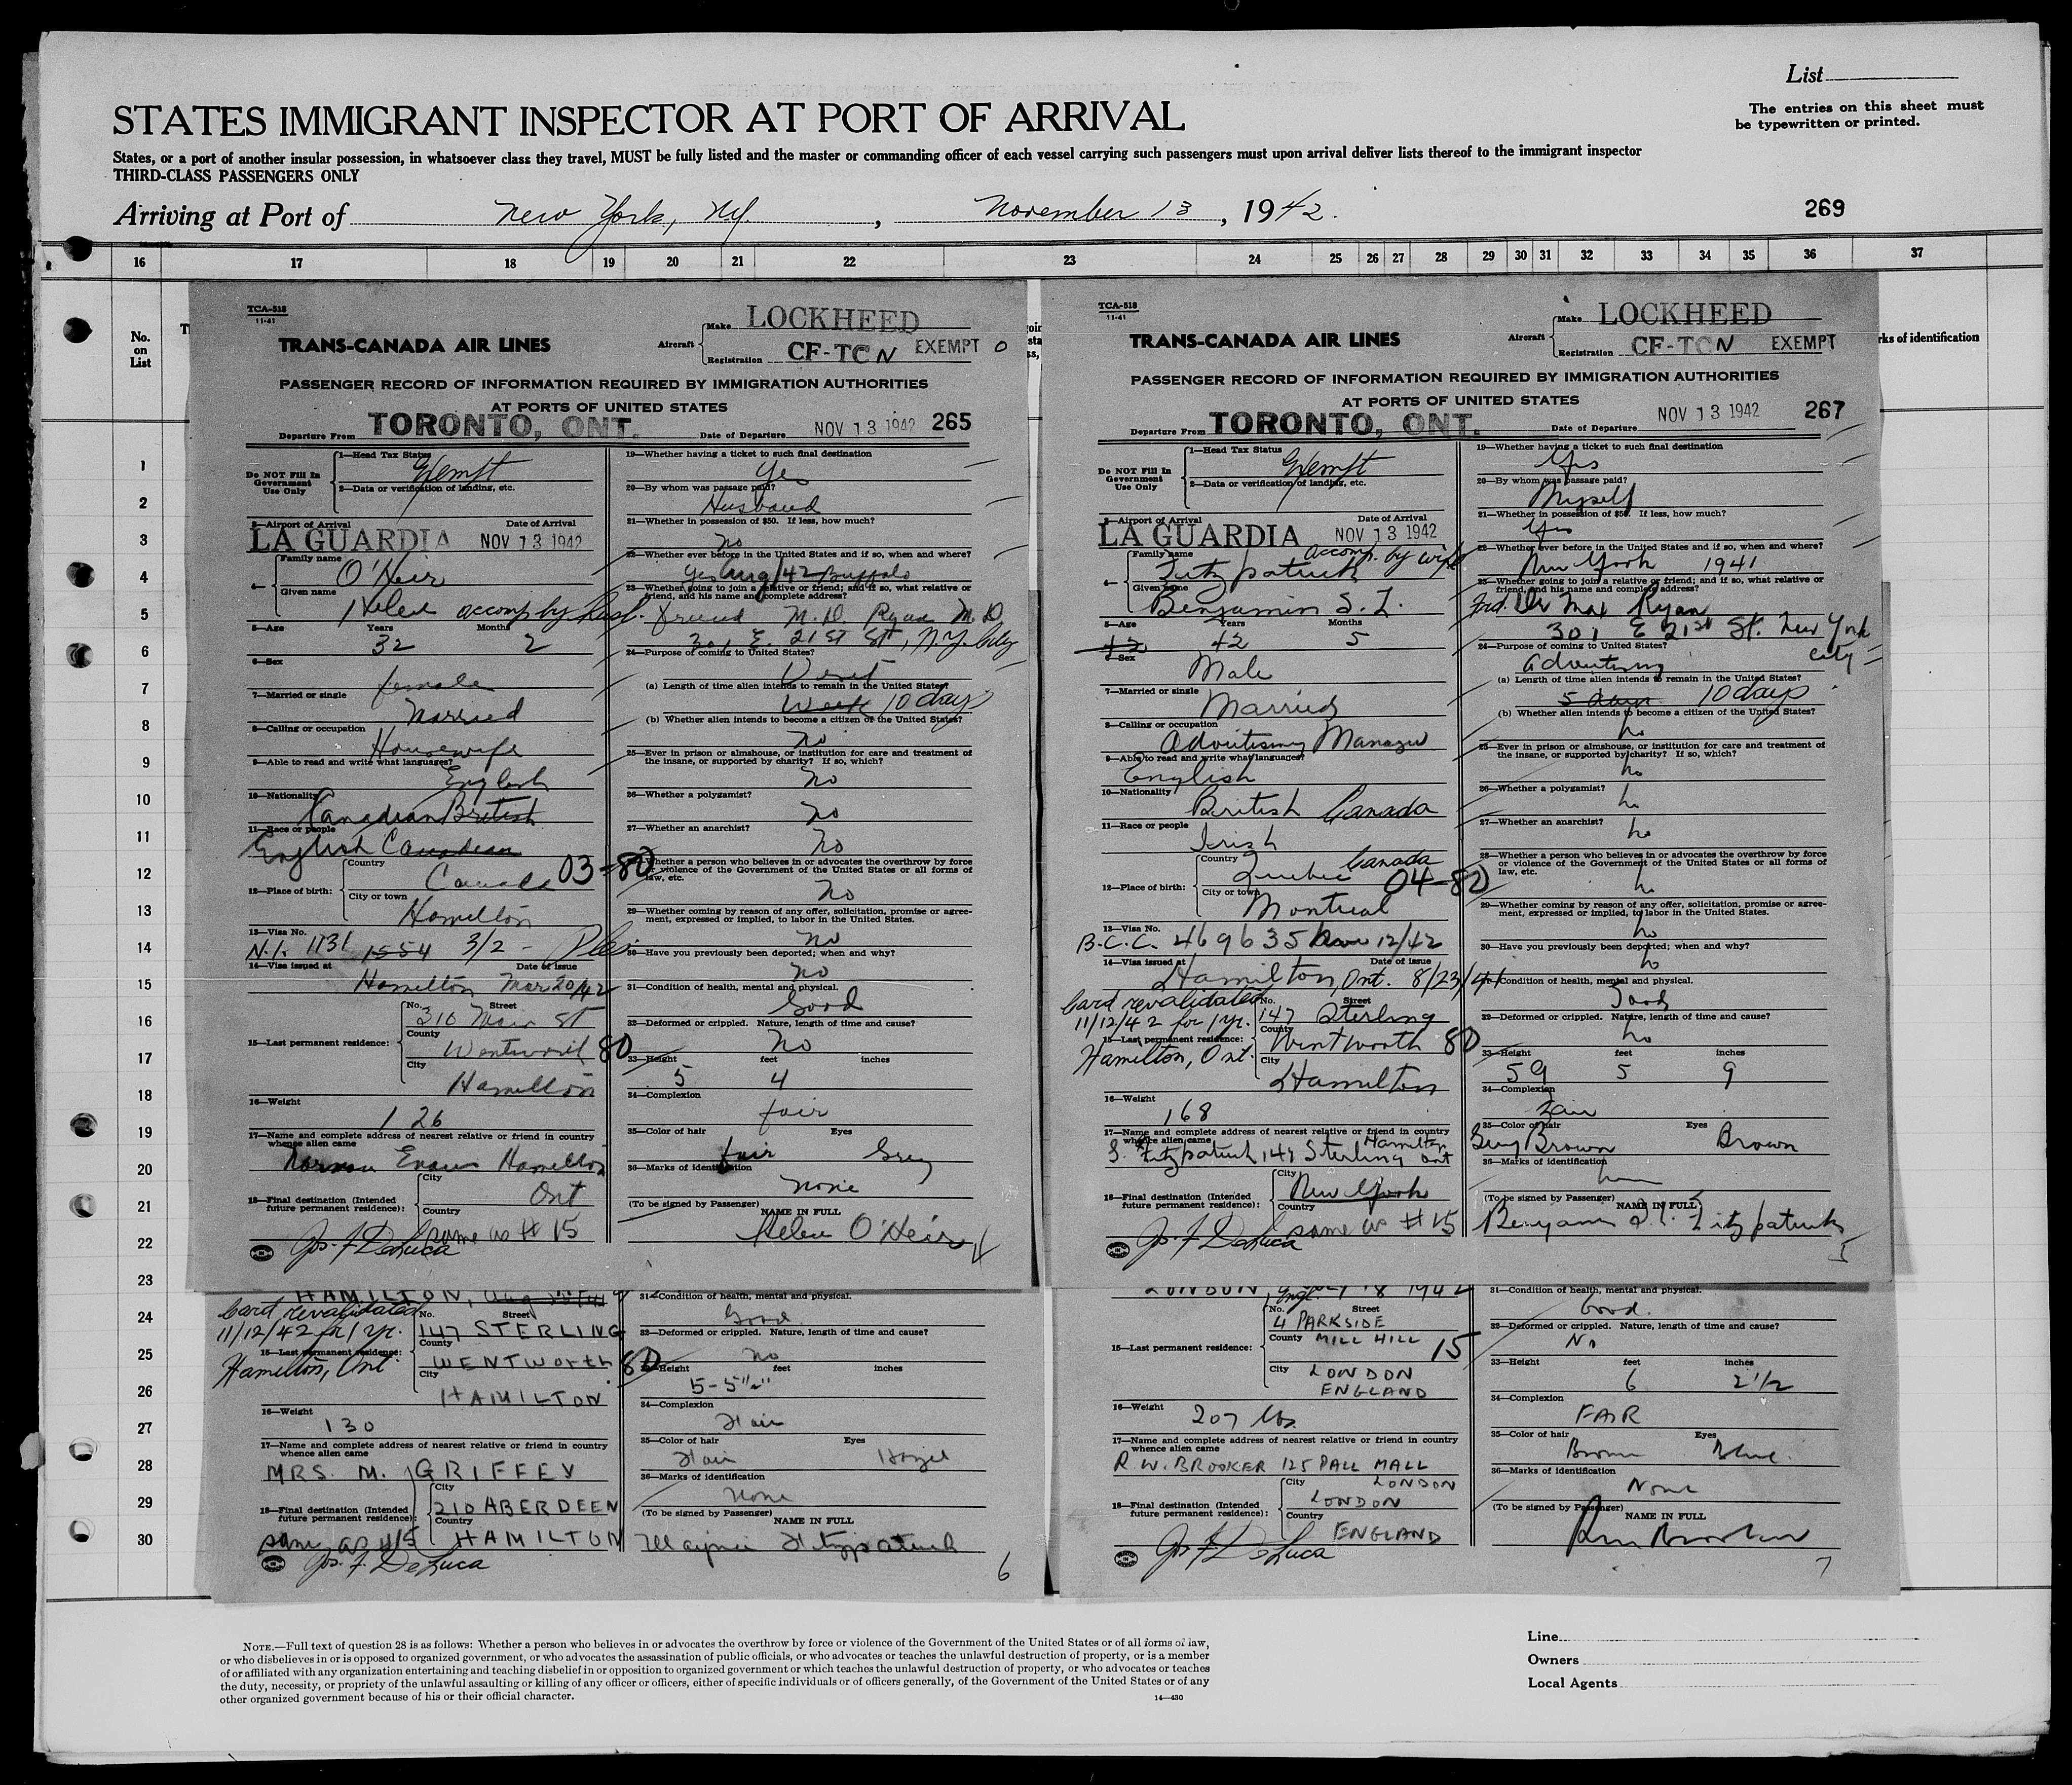 List
STATES IMMIGRANT INSPECTOR AT PORT OF ARRIVAL
The entries on this sheet must
be typewritten or printed.
States, or a port of another insular possession, in whatsoever class they travel, MUST be fully listed and the master or commanding officer of each vessel carrying such passengers must upon arrival deliver lists thereof to the immigrant inspector
THIRD-CLASS PASSENGERS ONLY
Arriving at Port of New York, NY. , November 13 , 1942. 269
16 17 18 19 20 21 22 23 24 25 26 27 28 29 30 31 32 33 34 35 36 37
No.
on
List
rks of identification
1
2
3
4
5
6
7
8
9
10
11
12
13
14
15
16
17
18
19
20
21
22
23
24
25
26
27
28
29
30
TCA-518
11-41
TRANS-CANADA AIR LINES
Aircraft
Make LOCKHEED
Registration CF-TCN EXEMPT 0
PASSENGER RECORD OF INFORMATION REQUIRED BY IMMIGRATION AUTHORITIES
AT PORTS OF UNITED STATES
Departure From TORONTO, ONT. Date of Departure NOV 13 1942 265
Do NOT Fill In
Government
Use Only
1—Head Tax Status
Exempt
2—Data or verification of landing, etc.
3—Airport of Arrival Date of Arrival
LA GUARDIA NOV 13 1942
4—
Family name
O'Heir
Given name
Helen accomp by husb.
5—Age Years Months
32 2
6—Sex
female
7—Married or single
Married
8—Calling or occupation
Housewife
9—Able to read and write what languages?
English
10—Nationality
Canadian British
11—Race or people
English Canadian
12—Place of birth:
Country
Canada 03-80
City or town
Hamilton
13—Visa No.
N.I. 1131 1554 3/2 -
14—Visa issued at Date of issue
Hamilton Mar 20/42
15—Last permanent residence:
No. Street
310 Main St
County
Wentworth 80
City
Hamilton
16—Weight
126
17—Name and complete address of nearest relative or friend in country
whence alien came
Norman Evans Hamilton
18—Final destination (Intended
future permanent residence):
City
Ont
Country
same as # 15
Jos. F. DeLuca
19—Whether having a ticket to such final destination
Yes
20—By whom was passage paid?
Husband
21—Whether in possession of $50. If less, how much?
no
22—Whether ever before in the United States and if so, when and where?
Yes Aug/42 Buffalo
23—Whether going to join a relative or friend; and if so, what relative or
friend, and his name and complete address?
friend M. D. Ryan M.D.
301 E. 21ST St, N.Y. City
24—Purpose of coming to United States?
Visit
(a) Length of time alien intends to remain in the United States?
Week 10 days
(b) Whether alien intends to become a citizen of the United States?
no
25—Ever in prison or almshouse, or institution for care and treatment of
the insane, or supported by charity? If so, which?
no
26—Whether a polygamist?
no
27—Whether an anarchist?
no
Whether a person who believes in or advocates the overthrow by force
or violence of the Government of the United States or all forms of
law, etc.
no
29—Whether coming by reason of any offer, solicitation, promise or agree-
ment, expressed or implied, to labor in the United States.
no
30—Have you previously been deported; when and why?
no
31—Condition of health, mental and physical.
Good
32—Deformed or crippled. Nature, length of time and cause?
No
33—Height feet inches
5 4
34—Complexion
fair
35—Color of hair Eyes
fair Grey
36—Marks of identification
none
(To be signed by Passenger)
NAME IN FULL
Helen O'Heir
TCA-518
11-41
TRANS-CANADA AIR LINES
Aircraft
Make LOCKHEED
Registration CF-TCN EXEMPT
PASSENGER RECORD OF INFORMATION REQUIRED BY IMMIGRATION AUTHORITIES
AT PORTS OF UNITED STATES
Departure From TORONTO, ONT. Date of Departure NOV 13 1942 267
Do NOT Fill In
Government
Use Only
1—Head Tax Status
Exempt
2—Data or verification of landing, etc.
3—Airport of Arrival Date of Arrival
LA GUARDIA NOV 13 1942
4—
Family name accomp. by wife
Fitzpatrick
Given name
Benjamin S. L.
5—Age Years Months
42 42 5
6—Sex
Male
7—Married or single
Married
8—Calling or occupation
Advertising Manager
9—Able to read and write what languages?
English
10—Nationality
British Canada
11—Race or people
Irish
12—Place of birth:
Country
Quebec Canada
04-80
City or town
Montreal
13—Visa No.
B.C.C. 469635 12/42
14—Visa issued at Date of issue
Hamilton, Ont. 8/23/41
Card revalidated
11/12/42 for 1 yr.
Hamilton, Ont.
15—Last permanent residence:
No. Street
147 Sterling
County
Wentworth 80
City
Hamilton
16—Weight
168
17—Name and complete address of nearest relative or friend in country
whence alien came
S. Fitzpatrick 147 Sterling Hamilton Ont
18—Final destination (Intended
future permanent residence):
City
New York
Country
same as # 15
Jos. F. DeLuca
19—Whether having a ticket to such final destination
Yes
20—By whom was passage paid?
Myself
21—Whether in possession of $50. If less, how much?
Yes
22—Whether ever before in the United States and if so, when and where?
New York 1941
23—Whether going to join a relative or friend; and if so, what relative or
friend, and his name and complete address?
frd. Dr Max Ryan
301 E 21st St. New York
city
24—Purpose of coming to United States?
Advertising
(a) Length of time alien intends to remain in the United States?
5 days 10 days
(b) Whether alien intends to become a citizen of the United States?
no
25—Ever in prison or almshouse, or institution for care and treatment of
the insane, or supported by charity? If so, which?
no
26—Whether a polygamist?
no
27—Whether an anarchist?
no
28—Whether a person who believes in or advocates the overthrow by force
or violence of the Government of the United States or all forms of
law, etc.
no
29—Whether coming by reason of any offer, solicitation, promise or agree-
ment, expressed or implied, to labor in the United States.
no
30—Have you previously been deported; when and why?
no
31—Condition of health, mental and physical.
Good
32—Deformed or crippled. Nature, length of time and cause?
no
33—Height feet inches
59 5 9
34—Complexion
Fair
35—Color of hair Eyes
Grey Brown Brown
36—Marks of identification
(To be signed by Passenger)
NAME IN FULL
Benjamin S. L. Fitzpatrick
HAMILTON,
Card revalidated
11/12/42 for 1 yr.
Hamilton, Ont.
15—Last permanent residence:
No. Street
147 STERLING
County
WENTWORTH 80
City
HAMILTON
16—Weight
130
17—Name and complete address of nearest relative or friend in country
whence alien came
MRS. M. GRIFFEY
18—Final destination (Intended
future permanent residence):
City
210 ABERDEEN
Country
same as #15 HAMILTON
Jos. F. DeLuca
31—Condition of health, mental and physical.
Good
32—Deformed or crippled. Nature, length of time and cause?
no
33—Height feet inches
5-5½"
34—Complexion
Fair
35—Color of hair Eyes
Fair Hazel
36—Marks of identification
None
(To be signed by Passenger)
NAME IN FULL
Fitzpatrick
6
LONDON, Engl. July 18 1942
15—Last permanent residence:
No. Street
4 PARKSIDE
County MILL HILL 15
City LONDON
ENGLAND
16—Weight
207 lbs
17—Name and complete address of nearest relative or friend in country
whence alien came
R. W. BROOKER 125 PALL MALL
LONDON
18—Final destination (Intended
future permanent residence):
City
LONDON
Country
ENGLAND
Jos. F. DeLuca
31—Condition of health, mental and physical.
Good.
32—Deformed or crippled. Nature, length of time and cause?
No
33—Height feet inches
6 2 1/2
34—Complexion
FAIR
35—Color of hair Eyes
Brown Blue.
36—Marks of identification
None
(To be signed by Passenger)
NAME IN FULL
7
NOTE.—Full text of question 28 is as follows: Whether a person who believes in or advocates the overthrow by force or violence of the Government of the United States or of all forms of law,
or who disbelieves in or is opposed to organized government, or who advocates the assassination of public officials, or who advocates or teaches the unlawful destruction of property, or is a member
of or affiliated with any organization entertaining and teaching disbelief in or opposition to organized government or which teaches the unlawful destruction of property, or who advocates or teaches
the duty, necessity, or propriety of the unlawful assaulting or killing of any officer or officers, either of specific individuals or of officers generally, of the Government of the United States or of any
other organized government because of his or their official character.
14—430
Line
Owners
Local Agents